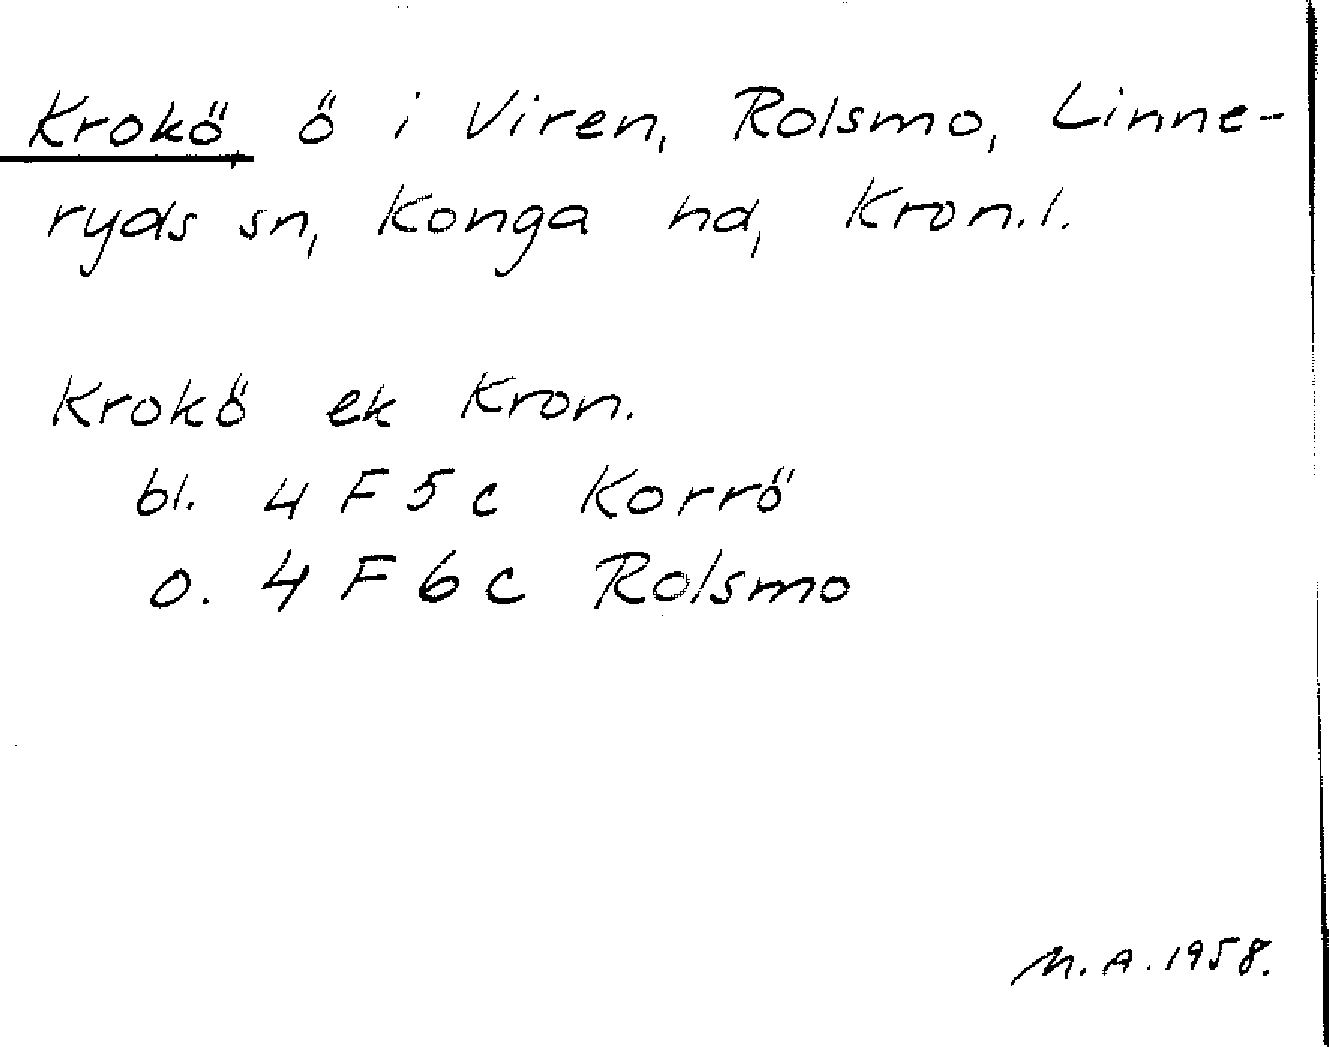 Krokö, ö i Viren, Rolsmo, Linne-
ryds sn, Konga hd, Kron.l.
Krokö ek Kron.
bl. 4 F 5 c Korrö
o. 4 F 6 c Rolsmo
M.A. 1958.